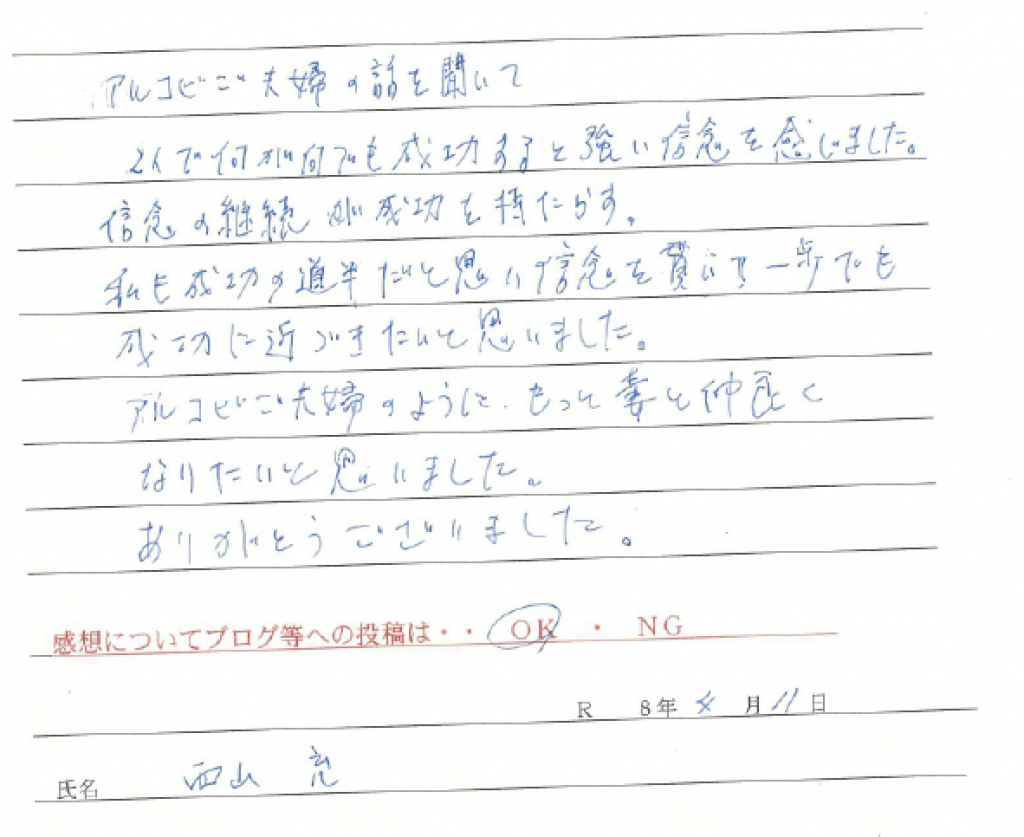 アルコビご夫婦の話を聞いて
2人で何が何でも成功すると強い信念を感じました。
信念の継続が成功を持たらす。
私も成功の道半だいと思い信念を貫いて一歩でも
成功に近づきたいと思いました。
アルコビご夫婦のように、もっと妻と仲良く
なりたいと思いました。
ありがとうございました。
感想についてブログ等への投稿は・・ OK ・ NG
R 8年 4月 11日
氏名 西山 亮